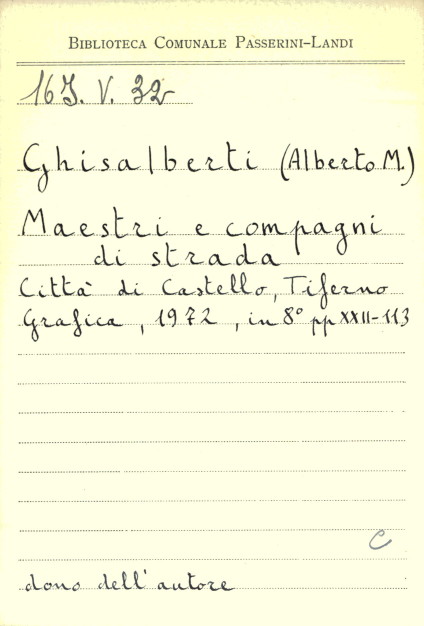 BIBLIOTECA COMUNALE PASSERINI-LANDI
16J. V. 32
Ghisalberti (Alberto M.)
Maestri e compagni
di strada
Città di Castello, Tiferno
Grafica, 1972, in 8° pp XXII-113
C
dono dell'autore